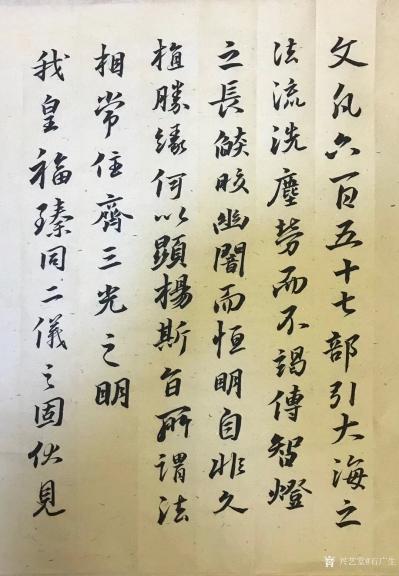 文凡六百五十七部引大海之
法流洗塵勞而不竭傳智燈
之長燄皎幽闇而恒明自非久
植勝緣何以顯揚斯旨所謂法
相常住齊三光之明
我皇福臻同二儀之固伏見
兴艺堂@石广生